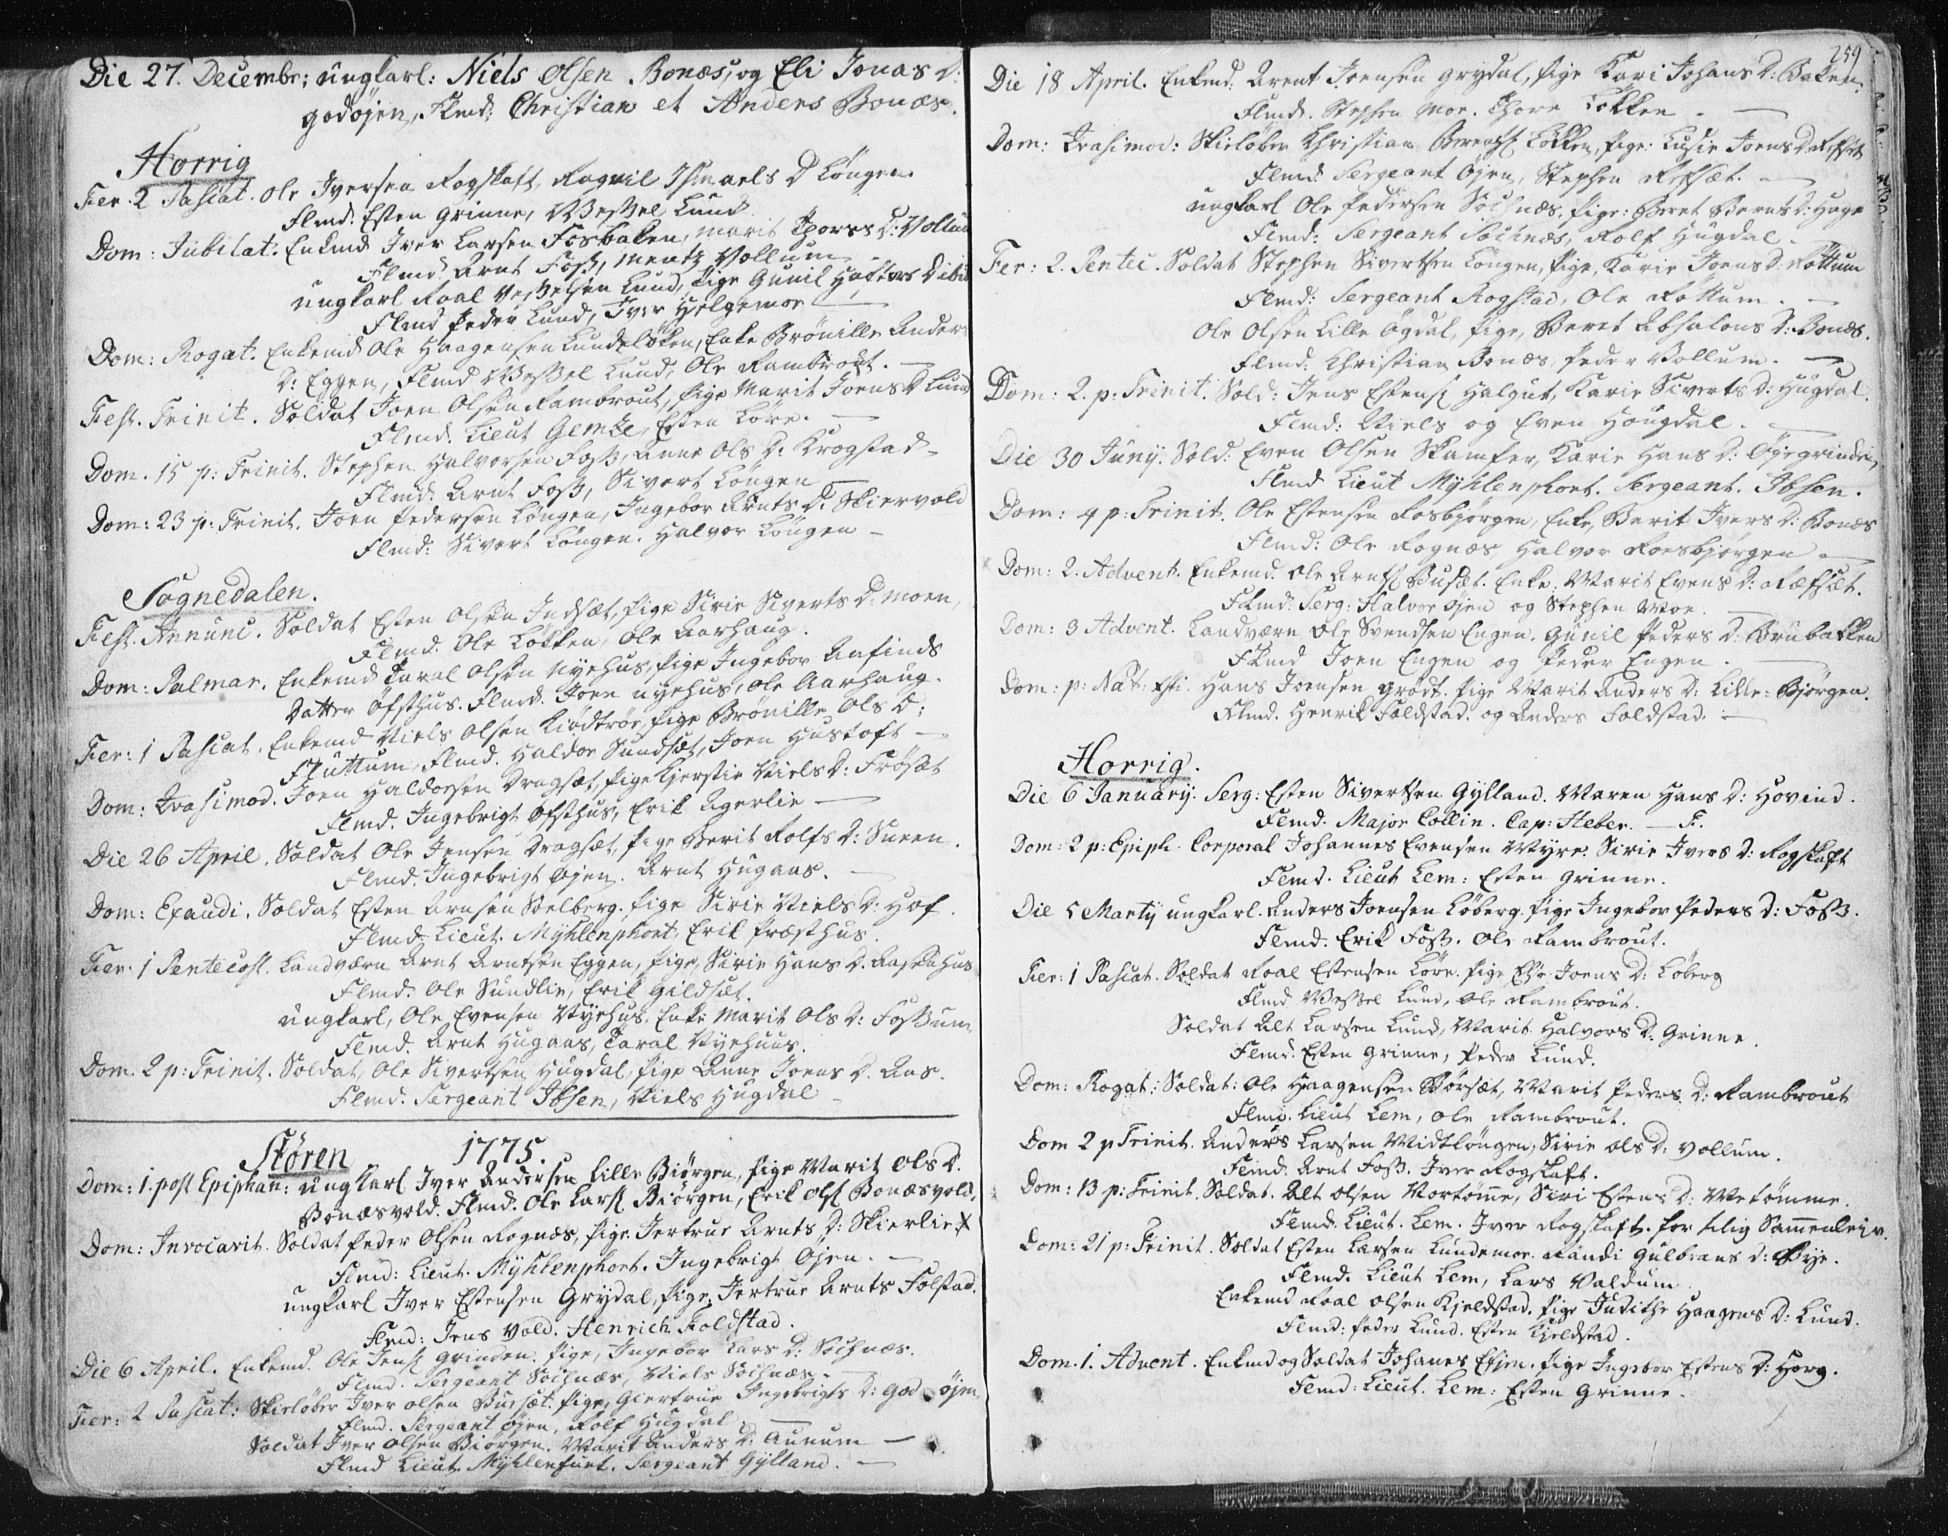 Die 27. Decembr; ungkarl: Niels Olsen Bonæs, og Eli Jonas D:
godøjen, Flmd: Christian et Anders Bonæs.
Horrig
Fer. 2 Pascat. Ole Iversen Rogstaft, Ragnil Ismaels D Löngen
Flmd. Esten Grinne, Wessel Lund
Dom: Jubilat. Enkemd Iver Larsen Fosbaken, Marit Thorss D: Vollum
Flmd Arnt Foss, Mentz Vollum
ungkarl Roal Wesselsen Lund, Pige Gunil Hafters D
Flmd Peder Lund, Iver Helgemoe
Dom: Rogat. Enkemd Ole Haagensen Lundsløken, Enke Brönille Anders
D: Eggen, Flmd Wessel Lund, Ole Rambrout.
Fest. Trinit. Soldat Joen Olsen Rambrout, Pige Marit Joens D Lund
Flmd. Lieut Gemze, Esten Løre.
Dom. 15 p: Trinit. Stephen Halvorsen Foss, Anne Ols D. Krogstad
Flmd. Arnt Foss, Sivert Löngen
Dom: 23 p: Trinit. Joen Pedersen Löngen, Ingebor Arnts D: Skiervold
Flmd: Sivert Löngen. Halvor Löngen
Sognedalen.
Fest. Annunc. Soldat Esten Olsen Indsæt, Pige Sirie Siverts D: Moen,
Flmd. Ole Løkken, Ole Aarhaug.
Dom: Palmar. Enkemd Taral Olsen Nyehus, Pige Ingebor Anfinds
Datter Øfsthus. Flmd. Joen Nyehus, Ole Aarhaug.
Fer: 1 Pascat. Enkemd Niels Olsen Kiødtrøe, Pige Brönille Ols D:
Fluttum, Flmd. Haldor Sundset, Joen Hustoft
Dom: Qvasimod. Joen Haldorsen Dragsæt, Pige Kjerstie Niels D: Frösæt
Flmd. Ingebrigt Øfsthus, Erik Agerlie
Die 26 April. Soldat Ole Jensen Dragsæt, Pige Berit Rolfs D: Sueen.
Flmd. Ingebrigt Øjen. Arnt Hugaas.
Dom: Exaudi. Soldat Esten Arnsen Solberg. Pige Sirie Niels D: Hof.
Flmd. Lieut. Mÿhlenphort, Erik Præsthus.
Fer. 1 Pentecost. Landværn Arnt Arntsen Eggen, Pige, Sirie Hans D.
Flmd. Ole Sundlie, Erik Gildsæt.
ungkarl, Ole Evensen Nyehus, Enke Marit Ols D: Fossum
Flmd. Arnt Hugaas, Taral Nyehuus.
Dom. 2 p: Trinit. Soldat, Ole Sivertsen Hugdal, Pige Anne Joens D. Aas.
Flmd. Sergeant Ibsen, Niels Hugdal
Støren 1775.
Dom: 1. post Epiphan: ungkarl Iver Andersen Lille Biörgen, Pige Marit Ols D.
Bonæsvold. Flmd. Ole Lars Biörgen, Erik Ols Bonæsvold.
Dom: Invocavit. Soldat Peder Olsen Rognæs, Pige Jertrue Arnts D: Skierlie
Flmd: Lieut. Mÿhlenphort. Ingebrigt Øjen.
ungkarl Iver Estensen Grydal, Pige, Jertrue Arnts Folstad.
Flmd: Jens Vold. Henrich Foldstad.
Die 6 April. Enkemd. Ole Jens Grinden. Pige, Ingebor Lars D: Sochnæs.
Flmd: Sergeant Sochnæs, Niels Sochnæs.
Fer: 2 Pascat: Skieløber Iver Olsen Bursæt. Pige, Giertrue Ingebrigts D: Godøjen
Flmd. Sergeant Øjen, Rolf Hugdal
Soldat Iver Olsen Biörgen. Marit Anders D: Aunum
Flmd Lieut. Mÿhlenfurt. Sergeant Gylland.
259
Die 18 April. Enkemd: Arent Joensen Grydal, Pige Kari Johans D: Baken.
Flmd. Stephen Moe. Thore Løkken
Dom: Qvasimod: Skieløber Christian Berents Løkken, Pige: Lusie Joens D
Flmd. Sergeant Øjen, Stephen
ungkarl Ole Pedersen Sochnæs. Pige: Beret Bernts D: Hage
Flmd: Sergeant Sochnæs, Rolf Hugdal.
Fer: 2. Pentec. Soldat Stephen Sivertsen Löngen, Pige, Karie Joens D: Rottum
Flmd: Sergeant Rogstad, Ole Rottum.
Ole Olsen Lille Øgdal, Pige, Beret Absalons D: Bonæs.
Flmd: Christian Bonæs, Peder Vollum.
Dom: 2. p: Trinit. Sold: Jens Estens Halgut, Karie Siverts D: Hugdal.
Flmd: Niels og Even Hougdal.
Die 30 Junÿ. Sold: Even Olsen Skamfer, Karie Hans D: Øyegrinden,
Flmd Lieut Mÿhlenphort. Sergeant. Ibsen.
Dom: 4 p: Trinit. Ole Estensen Rosbjørgen, Enke, Barit Ivers D: Bonæs
Flmd: Ole Rognæs Halvor Roesbjørgen
Dom: 2. Advent. Enkemd. Ole Arnts Busæt. Enke. Marit Evens D: Refset.
Flmd: Serg: Halvor Øjen og Stephen Moe.
Dom: 3 Advent. Landværn Ole Svendsen Engen. Gunil Peders D: Brubakken
Flmd Joen Engen og Peder Engen.
Dom: p: Nat: Hans Joensen Grödt. Pige Marit Anders D: Lille: Bjørgen.
Flmd. Henrik Foldstad. og Anders Foldstad.
Horrig.
Die 6 Januarÿ. Serg: Esten Sivertsen Gylland. Maren Hans D: Hovind.
Flmd. Major Collin. Cap: Heber.
Dom: 2 p: Epiph. Corporal Johannes Evensen Myre. Sirie Ivers D: Rogstaft
Flmd. Lieut Lem: Esten Grinne.
Die 5 Martÿ ungkarl. Anders Joensen Løberg. Pige Ingebor Peders D: Foss.
Flmd. Erik Foss. Ole Rambrout.
Fer: 1 Pascat. Soldat Roal Estensen Løre. Pige Joens D: Løberg
Flmd Wessel Lund, Ole Rambrout.
Soldat Alt Larsen Lund, Marit Halvors D: Grinne.
Flmd. Esten Grinne, Peder Lund.
Dom: Rogat: Soldat: Ole Haagensen Børsæt, Marit Peders D: Rambrout
Flmd. Lieut Lem, Ole Rambrout.
Dom 2 p Trinit. Anders Larsen Midtløngen, Sirie Ols D: Vollum.
Flmd. Arnt Foss. Iver Rogstaft.
Dom: 13 p: Trinit. Soldat. Alt Olsen Mortømme, Siri Estens D: Metømme.
Flmd. Lieut. Lem. Iver Rogstaft. for Sammenleie.
Dom: 21 p: Trinit. Soldat Esten Larsen Lundemoe. Randi Gulbrans D: Bye.
Flmd. Lieut Lem, Lars Valdum
Enkemd Roal Olsen Kjeldstad. Pige Judithe Haagens D: Lund.
Flmd: Peder Lund. Esten Kjeldstad.
Dom. 1. Advent. Enkmd og Soldat Johanes Esjen. Pige Ingebor Estens D: Horg.
Flmd: Lieut. Lem: Esten Grinne.